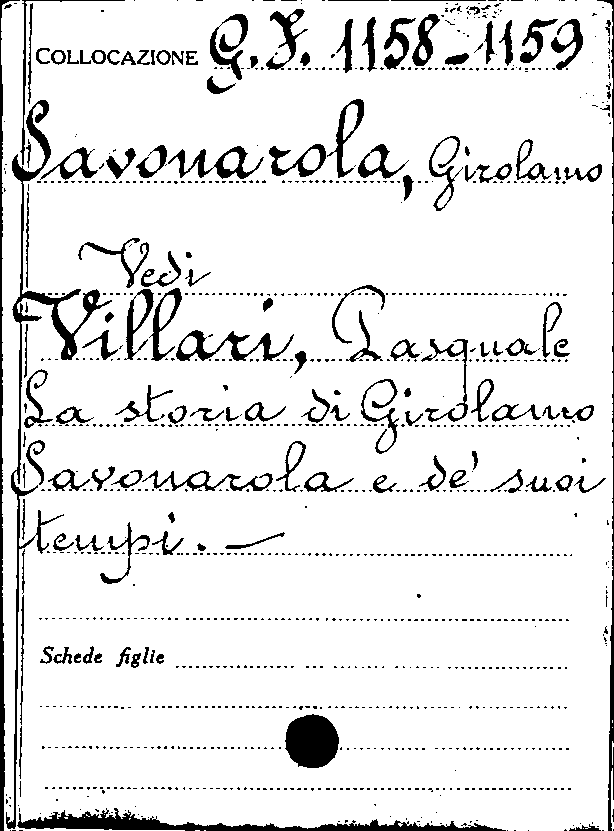 COLLOCAZIONE G. F. 1158-1159
Savonarola, Girolamo
Vedi
Villari, Pasquale
La storia di Girolamo
Savonarola e de' suoi
tempi. —
Schede figlie